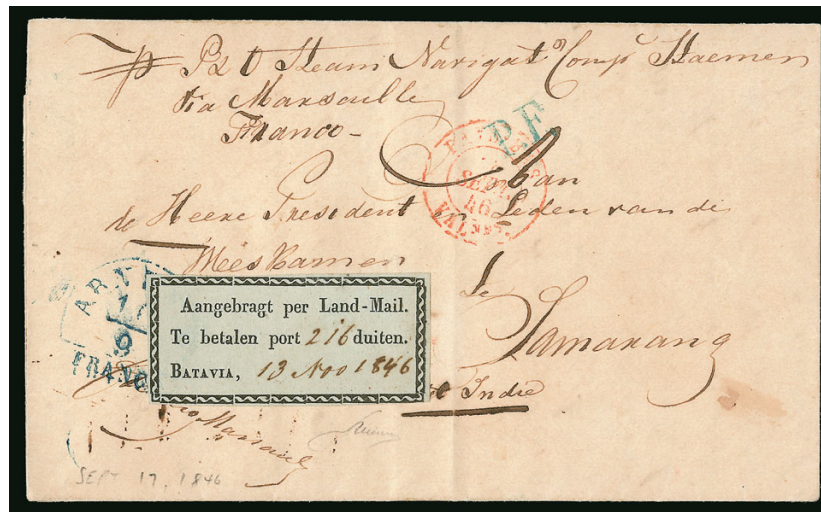 p P & O Steam Navigatⁿ Compˢ Staemen
via Marseille
Franco-
P.F.
SEPT
46
VALNES.
Aan
de Heere President en Leden van de
Weeskamer
te
Samarang
Indië
9
FRANCO
Aangebragt per Land-Mail.
Te betalen port 216 duiten.
BATAVIA, 13 Nov 1846
Marseille
SEPT 17. 1846